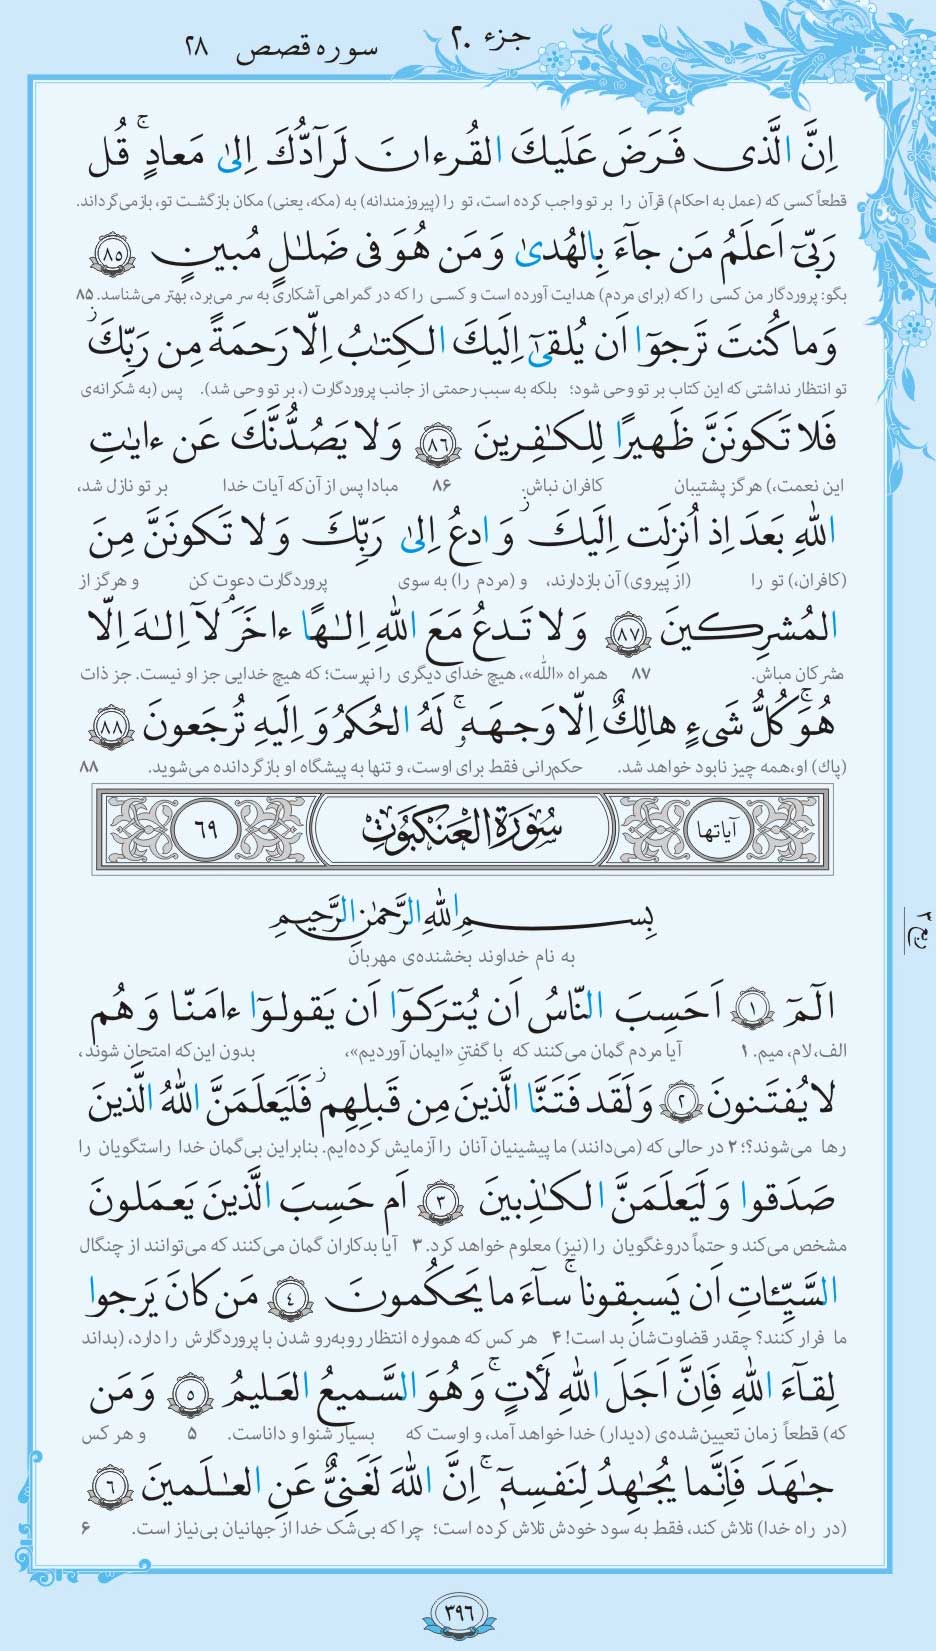 جزء ۲۰
سوره قصص ۲۸
اِنَّ الَّذی فَرَضَ عَلَیكَ القُرءانَ لَرَآدُّكَ اِلیٰ مَعادٍ ۚ قُل
قطعاً کسی که (عمل به احکام) قرآن را بر تو واجب کرده است، تو را (پیروزمندانه) به (مکه، یعنی) مکان بازگشت تو، بازمی‌گرداند.
رَبّیٓ اَعلَمُ مَن جآءَ بِالهُدیٰ وَ مَن هُوَ فی ضَلـٰلٍ مُبینٍ ﴿٨٥﴾
بگو: پروردگار من کسی را که (برای مردم) هدایت آورده است و کسی را که در گمراهی آشکاری به سر می‌برد، بهتر می‌شناسد. ۸۵
وَ ما كُنتَ تَرجوٓا اَن یُلقیٰٓ اِلَیكَ الكِتـٰبُ اِلّا رَحمَةً مِن رَبِّكَ ۖ
تو انتظار نداشتی که این کتاب بر تو وحی شود؛ بلکه به سبب رحمتی از جانب پروردگارت (، بر تو وحی شد). پس (به شکرانه‌ی
فَلا تَكونَنَّ ظَهیرًا لِلكـٰفِرینَ ﴿٨٦﴾ وَ لا یَصُدُّنَّكَ عَن ءایـٰتِ
این نعمت،) هرگز پشتیبان کافران نباش. ۸۶ مبادا پس از آن‌که آیات خدا بر تو نازل شد،
اللهِ بَعدَ اِذ اُنزِلَت اِلَیكَ ۖ وَ ادعُ اِلیٰ رَبِّكَ وَ لا تَكونَنَّ مِنَ
(کافران،) تو را (از پیروی) آن بازدارند، و (مردم را) به سوی پروردگارت دعوت کن و هرگز از
المُشرِكینَ ﴿٨٧﴾ وَ لا تَدعُ مَعَ اللهِ اِلـٰهًا ءاخَرَ ۘ لآ اِلـٰهَ اِلّا
مشرکان مباش. ۸۷ همراه «الله»، هیچ خدای دیگری را نپرست؛ که هیچ خدایی جز او نیست. جز ذات
هُوَ ۚ كُلُّ شَیءٍ هالِكٌ اِلّا وَجهَهٗ ۚ لَهُ الحُكمُ وَ اِلَیهِ تُرجَعونَ ﴿٨٨﴾
(پاك) او، همه چیز نابود خواهد شد. حکم‌رانی فقط برای اوست، و تنها به پیشگاه او بازگردانده می‌شوید. ۸۸
آیاتها سُورَةُ العَنكَبُوتِ ٦٩
بِسمِ اللهِ الرَّحمـٰنِ الرَّحیمِ
به نام خداوند بخشنده‌ی مهربان
ربع ۳
الٓمٓ ﴿١﴾ اَحَسِبَ النّاسُ اَن یُترَكوٓا اَن یَقولوٓا ءامَنّا وَ هُم
الف، لام، میم. ۱ آیا مردم گمان می‌کنند که با گفتنِ «ایمان آوردیم»، بدون این‌که امتحان شوند،
لا یُفتَنونَ ﴿٢﴾ وَ لَقَد فَتَنَّا الَّذینَ مِن قَبلِهِم ۖ فَلَیَعلَمَنَّ اللهُ الَّذینَ
رها می‌شوند؟؛ ۲ در حالی که (می‌دانند) ما پیشینیان آنان را آزمایش کرده‌ایم. بنابراین بی‌گمان خدا راستگویان را
صَدَقوا وَ لَیَعلَمَنَّ الكـٰذِبینَ ﴿٣﴾ اَم حَسِبَ الَّذینَ یَعمَلونَ
مشخص می‌کند و حتماً دروغگویان را (نیز) معلوم خواهد کرد. ۳ آیا بدکاران گمان می‌کنند که می‌توانند از چنگال
السَّیِّـٔاتِ اَن یَسبِقونا ۚ سآءَ ما یَحكُمونَ ﴿٤﴾ مَن كانَ یَرجوا
ما فرار کنند؟ چقدر قضاوت‌شان بد است! ۴ هر کس که همواره انتظار روبه‌رو شدن با پروردگارش را دارد، (بداند
لِقآءَ اللهِ فَاِنَّ اَجَلَ اللهِ لَـٔاتٍ ۚ وَ هُوَ السَّمیعُ العَلیمُ ﴿٥﴾ وَ مَن
که) قطعاً زمان تعیین‌شده‌ی (دیدار) خدا خواهد آمد، و اوست که بسیار شنوا و داناست. ۵ و هر کس
جـٰهَدَ فَاِنَّما یُجـٰهِدُ لِنَفسِهٖٓ ۚ اِنَّ اللهَ لَغَنِیٌّ عَنِ العـٰلَمینَ ﴿٦﴾
(در راه خدا) تلاش کند، فقط به سود خودش تلاش کرده است؛ چرا که بی‌شک خدا از جهانیان بی‌نیاز است. ۶
٣٩٦